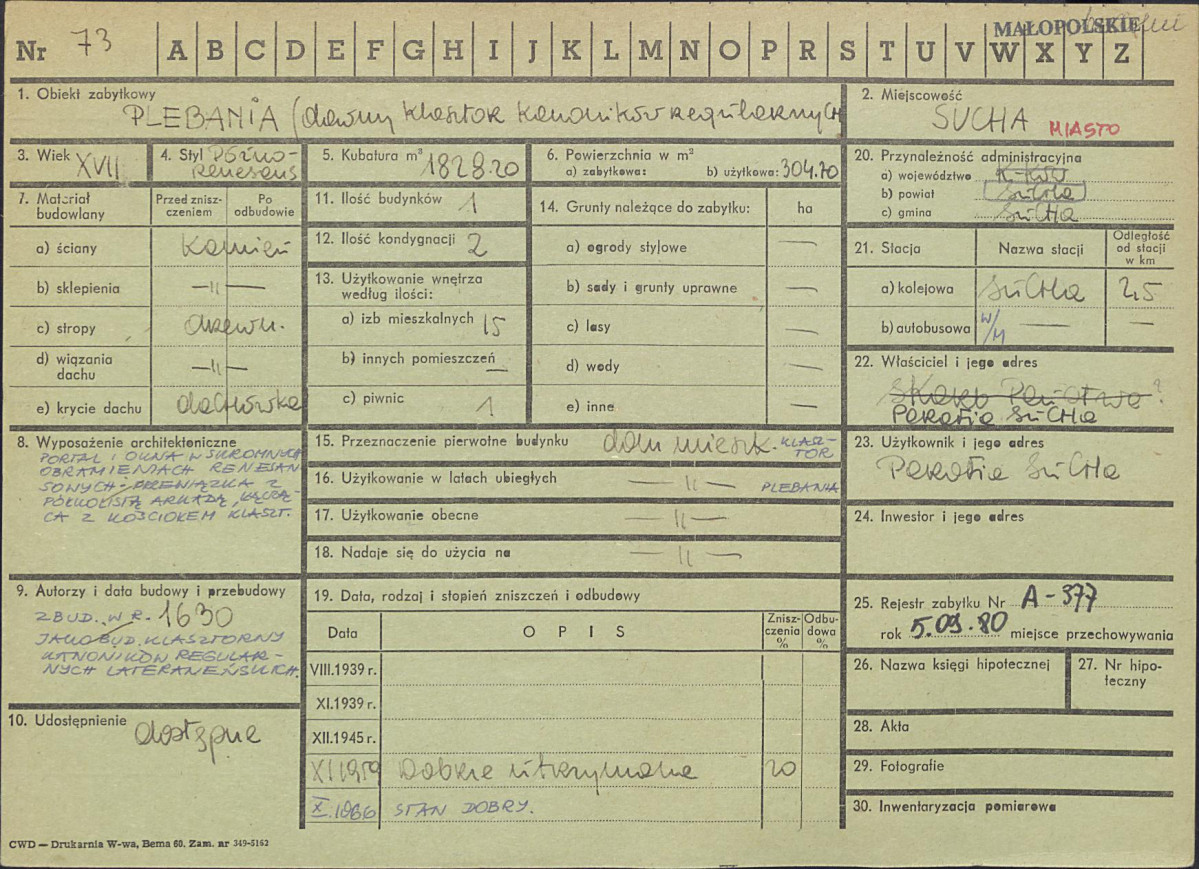 MAŁOPOLSKIE
Nr 73 A B C D E F G H I J K L M N O P R S T U V W X Y Z
1. Obiekt zabytkowy
PLEBANIA (dawny klasztor kanoników regularnych)
2. Miejscowość
SUCHA MIASTO
3. Wiek XVII
4. Styl Późno-
renesans
5. Kubatura m³ 1828.20
6. Powierzchnia w m²
a) zabytkowa: b) użytkowa: 304.70
20. Przynależność administracyjna
a) województwo K-ków
b) powiat SUCHA
c) gmina SUCHA
7. Materiał budowlany
Przed zniszczeniem
Po odbudowie
a) ściany kamień
b) sklepienia —"—
c) stropy drewn.
d) wiązania dachu —"—
e) krycie dachu dachówka
11. Ilość budynków 1
12. Ilość kondygnacji 2
13. Użytkowanie wnętrza według ilości:
a) izb mieszkalnych 15
b) innych pomieszczeń —
c) piwnic 1
14. Grunty należące do zabytku: ha
a) ogrody stylowe —
b) sady i grunty uprawne —
c) lasy —
d) wody —
e) inne —
21. Stacja
Nazwa stacji
Odległość od stacji w km
a) kolejowa SUCHA 2,5
b) autobusowa W/M — —
22. Właściciel i jego adres
Skarb Państwa ?
Parafia SUCHA
8. Wyposażenie architektoniczne
PORTAL I OKNA W SKROMNYCH
OBRAMIENIACH RENESAN
SOWYCH. PRZEWIĄZKA Z
PÓŁKOLISTĄ ARKADĄ, ŁĄCZĄ-
CA Z KOŚCIOŁEM KLASZT.
15. Przeznaczenie pierwotne budynku dom mieszk. KLASZ-
TOR
16. Użytkowanie w latach ubiegłych —"— PLEBANIA
17. Użytkowanie obecne —"—
18. Nadaje się do użycia na —"—
23. Użytkownik i jego adres
Parafia SUCHA
24. Inwestor i jego adres
9. Autorzy i data budowy i przebudowy
ZBUD. W R. 1630
JAKO BUD. KLASZTORNY
KANONIKÓW REGULAR-
NYCH LATERANEŃSKICH.
10. Udostępnienie dostępne
19. Data, rodzaj i stopień zniszczeń i odbudowy
Data
OPIS
Zniszczenia %
Odbudowa %
VIII.1939 r.
XI.1939 r.
XII.1945 r.
XI 1959 Dobrze utrzymana 20
X.1966 STAN DOBRY.
25. Rejestr zabytku Nr A-377
rok 5.09.80 miejsce przechowywania
26. Nazwa księgi hipotecznej
27. Nr hipoteczny
28. Akta
29. Fotografie
30. Inwentaryzacja pomiarowa
CWD — Drukarnia W-wa, Bema 60. Zam. nr 349-5162